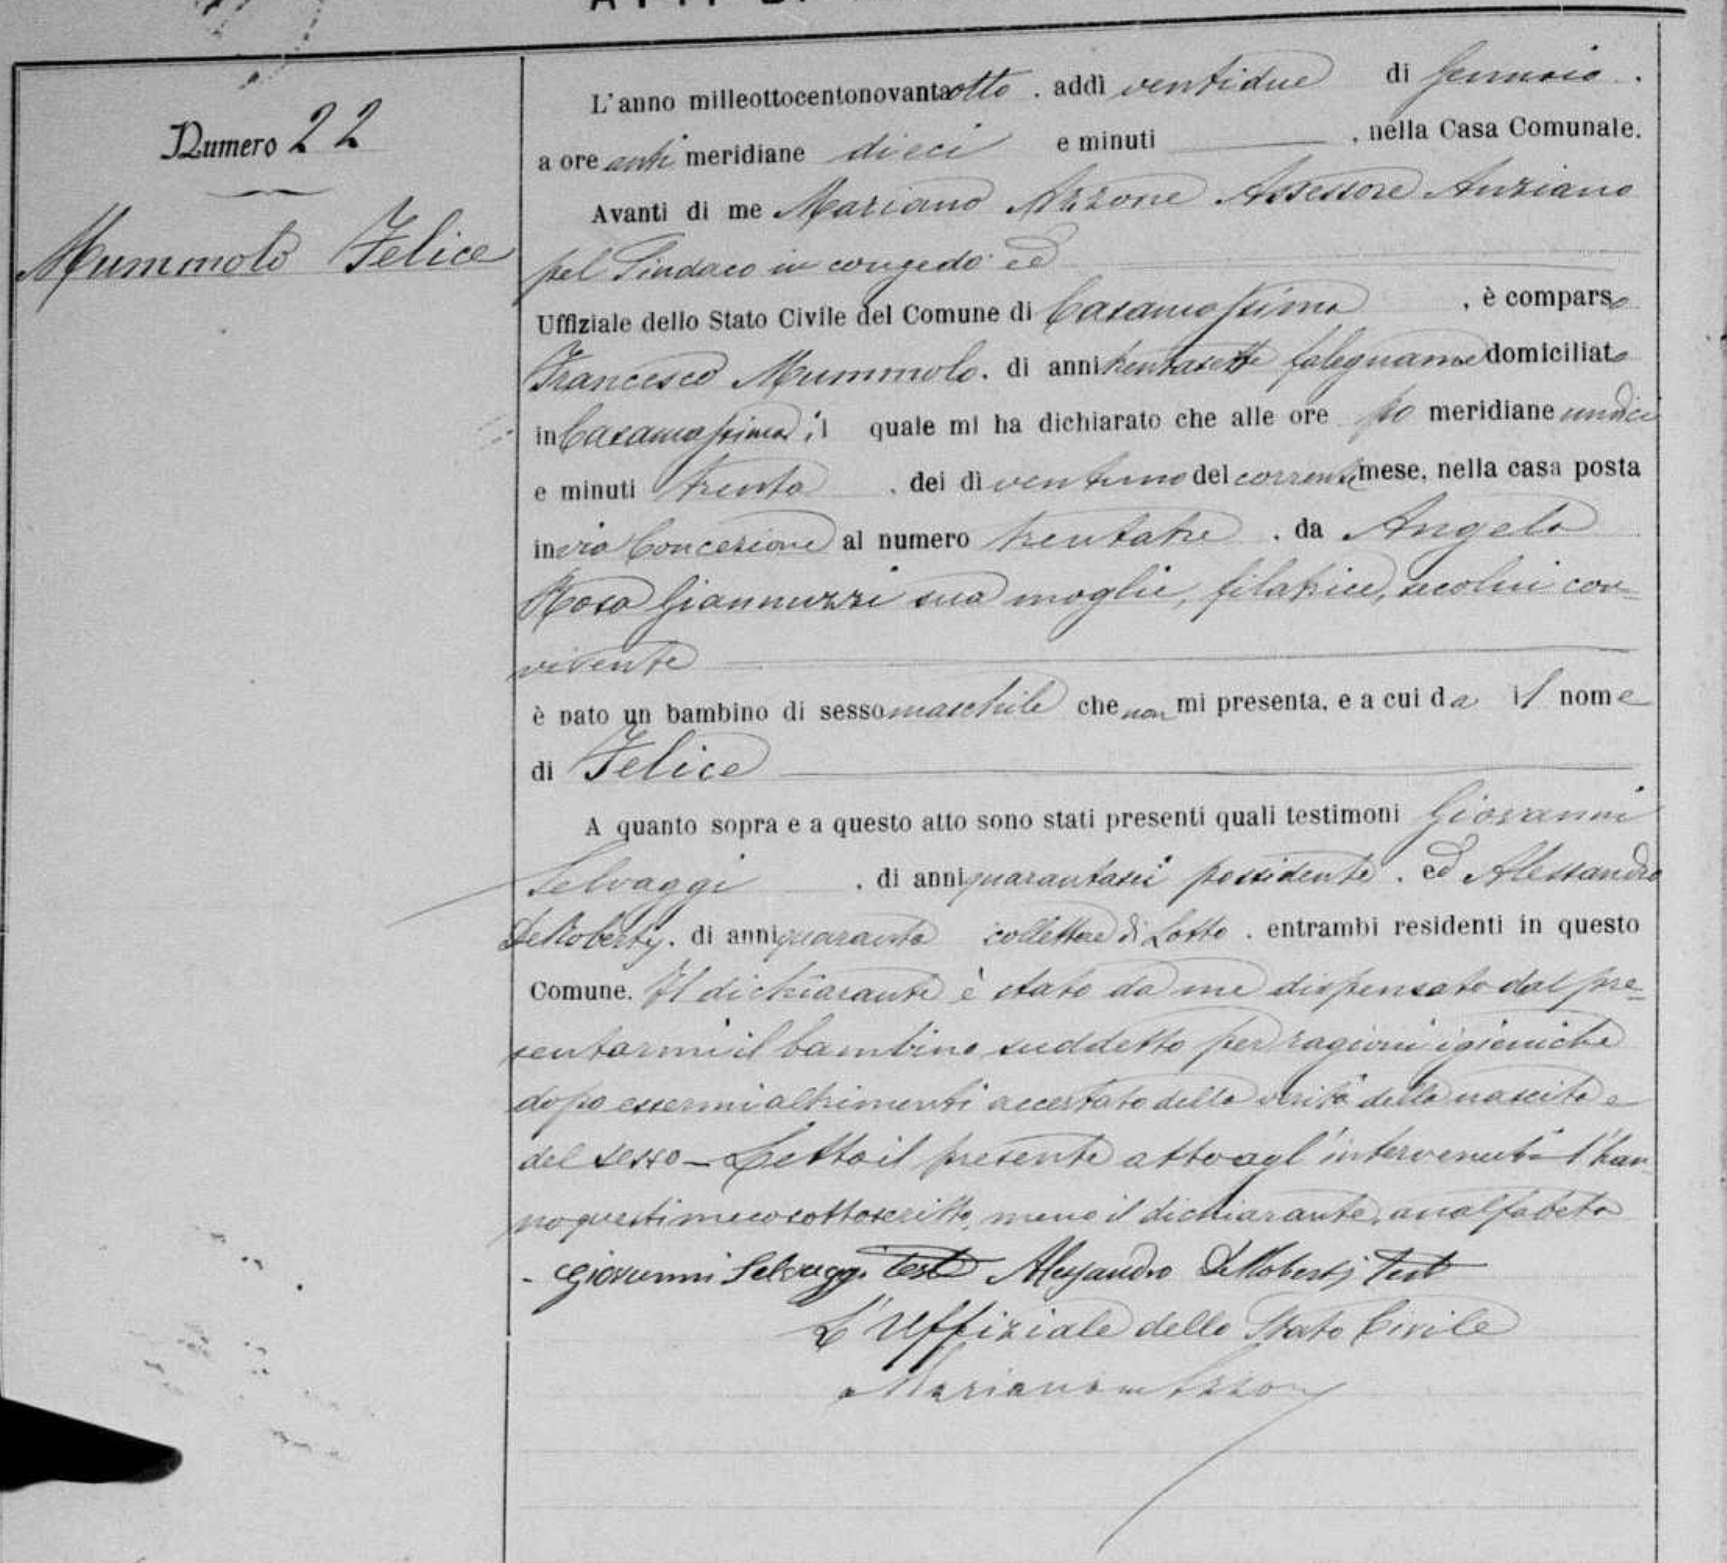 Numero 22
Mummolo Felice
L'anno milleottocentonovantaotto, addì ventidue di Gennaio,
a ore anti meridiane dieci e minuti , nella Casa Comunale.
Avanti di me Mariano Azzone Assessore Anziano
pel Sindaco in congedo ed
Uffiziale dello Stato Civile del Comune di Casamassima , è comparso
Francesco Mummolo, di anni trentasette falegname domiciliato
in Casamassima, il quale mi ha dichiarato che alle ore po meridiane undici
e minuti trenta , dei dì ventuno del corrente mese, nella casa posta
in via Concezione al numero trentatre , da Angela
Rosa Giannuzzi sua moglie, filatrice, secolui con=
vivente
è nato un bambino di sesso maschile che non mi presenta, e a cui da il nome
di Felice
A quanto sopra e a questo atto sono stati presenti quali testimoni Giovanni
Selvaggi , di anni quarantasei possidente, ed Alessandro
De Robertis, di anni quaranta collettore di Lotto, entrambi residenti in questo
Comune. Il dichiarante è stato da me dispensato dal pre=
sentarmi il bambino suddetto per ragioni igieniche
dopo essermi altrimenti accertato della verità della nascita e
del sesso – Letto il presente atto agl'intervenuti l'han
no questi meco sottoscritto, meno il dichiarante, analfabeta
- Giovanni Selvaggi test Alessandro De Robertis test
L'Uffiziale dello Stato Civile
Mariano Azzone